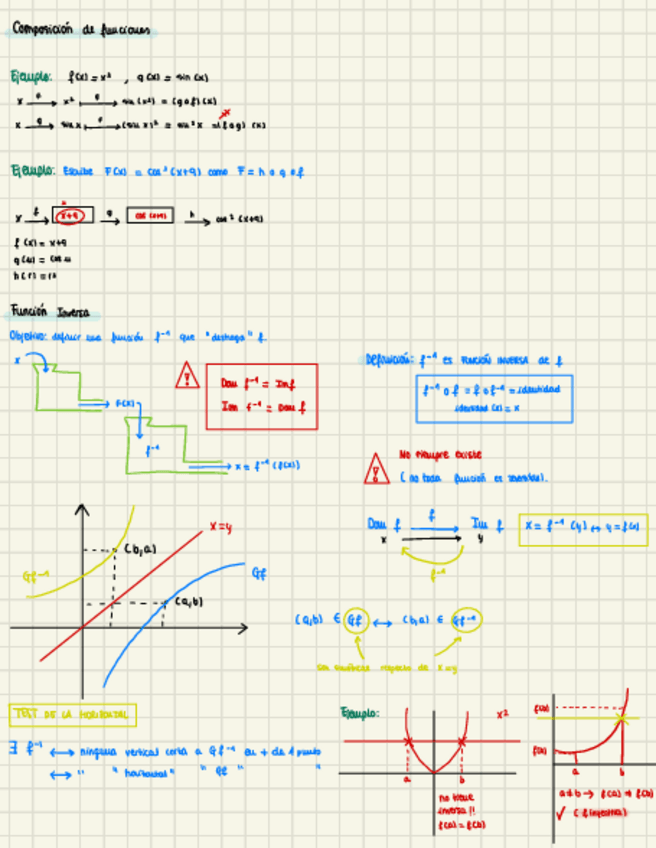 Composición de funciones
Ejemplo: f(x) = x² , g(x) = sin(x)
x → x² → sin(x²) = (g∘f)(x)
x →g sin x →f (sin x)² = sin²x = (f∘g)(x)
Ejemplo: Escribe F(x) = cos²(x+9) como F = h∘g∘f
x →f x+9 →g cos(x+9) →h cos²(x+9)
f(x) = x+9
Función Inversa
Objetivo: definir una función f⁻¹ que "deshaga" f.
x
F(x)
f⁻¹
x = f⁻¹(f(x))
Dom f⁻¹ = Im f
Im f⁻¹ = Dom f
Definición: f⁻¹ es FUNCIÓN INVERSA de f
f⁻¹∘f = f∘f⁻¹ = identidad
identidad (x) = x
No siempre existe
(no toda función es invertible).
Dom f →f Im f
x → y
f⁻¹
x = f⁻¹(y) ↔ y = f(x)
Gf⁻¹
(b,a)
x=y
Gf
(a,b)
(a,b) ∈ Gf ↔ (b,a) ∈ Gf⁻¹
son simétricas respecto de x=y
TEST DE LA HORIZONTAL
∃ f⁻¹ ↔ ninguna vertical corta a Gf⁻¹ en + de 1 punto
↔ " " horizontal " " Gf " "
Ejemplo:
x²
a b
no tiene
inversa!!
f(a) = f(b)
f(b)
f(a)
a b
a≠b → f(a) ≠ f(b)
✓ (f inyectiva)